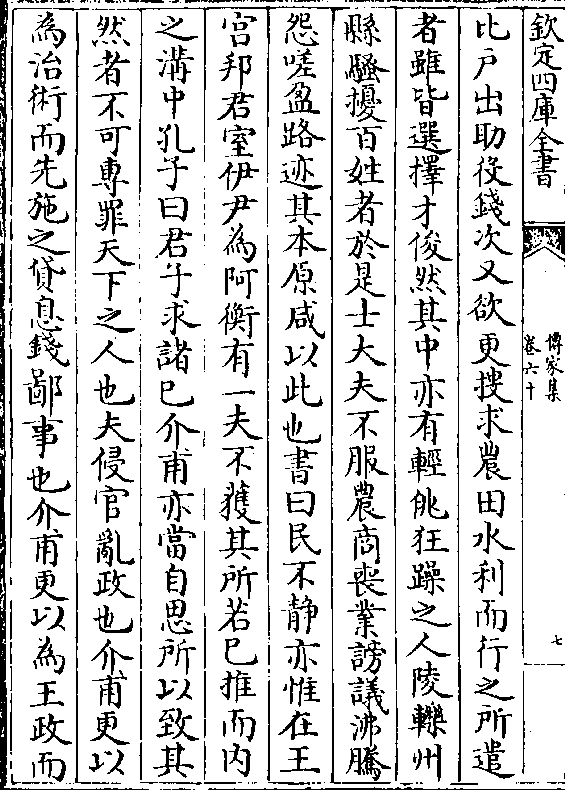 欽定四庫全書
傳家集
卷六十
七
比户出助役錢次又欲更搜求農田水利而行之所遣
者雖皆選擇才俊然其中亦有輕佻狂躁之人陵轢州
縣騷擾百姓者於是士大夫不服農商喪業謗議沸騰
怨嗟盈路迹其本原咸以此也書曰民不静亦惟在王
宫邦君室伊尹為阿衡有一夫不獲其所若已推而内
之溝中孔子曰君子求諸已介甫亦當自思所以致其
然者不可專罪天下之人也夫侵官亂政也介甫更以
為治術而先施之貸息錢鄙事也介甫更以為王政而